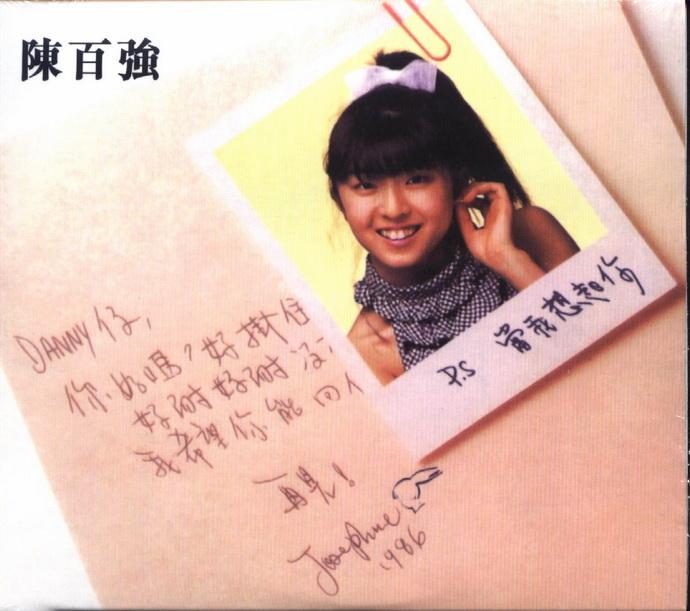 陳百強
DANNY仔,
你好嗎?好掛住
好耐好耐冇
我希望你能回
再見!
Josephine
1986
P.S 當我想起你